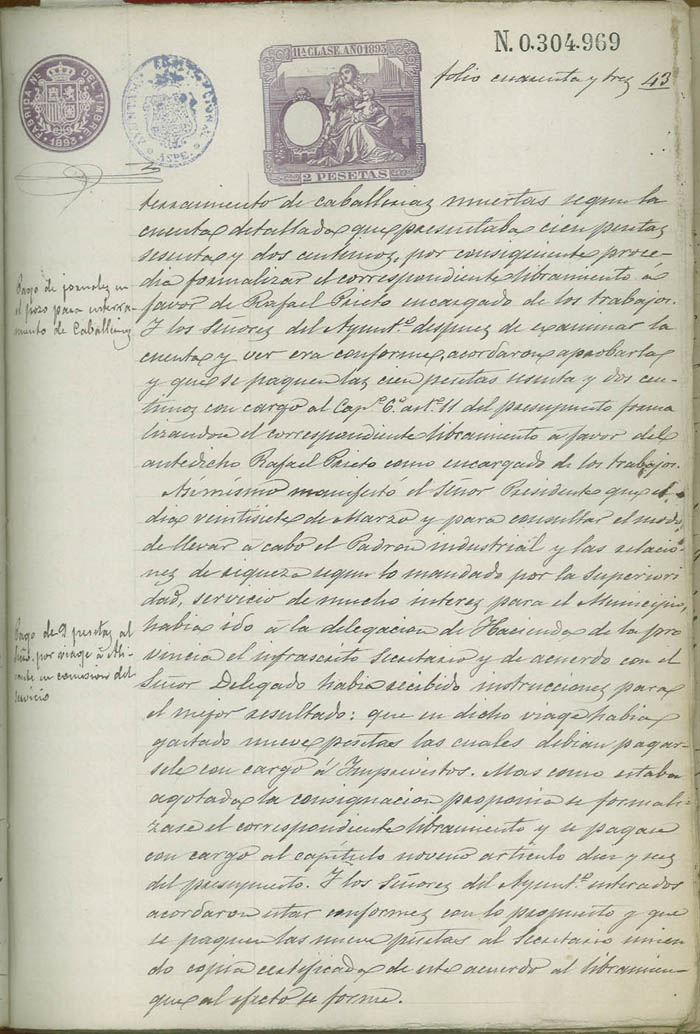 N. 0.304.969
11ª CLASE, AÑO 1893
2 PESETAS
FABRICA Nal. DEL TIMBRE
1893
ASPE
folio cuarenta y tres 43
terramiento de caballerias muertas segun la
cuenta detallada que presentaba cien pesetas
sesenta y dos centimos, por consiguiente proce-
dia formalizar el correspondiente libramiento a
favor de Rafael Prieto encargado de los trabajos.
Y los Señores del Ayuntº. despues de examinar la
cuenta y ver era conforme, acordaron aprobarla
y que se paguen las cien pesetas sesenta y dos cen-
timos con cargo al Capº. 6º. artº. 11 del presupuesto forma
lizandose el correspondiente libramiento a favor del
antedicho Rafael Prieto como encargado de los trabajos.
Pago de jornales en
el pozo para enterra-
miento de Caballerias
Asimismo manifestó el Señor Presidente que el
dia veintisiete de Marzo y para consultar el modo
de llevar á cabo el Padron industrial y las relacio-
nes de riqueza segun lo mandado por la Superiori
dad, servicio de mucho interes para el Municipio,
habia ido á la delegacion de Hacienda de la pro
vincia el infrascrito Secretario y de acuerdo con el
Señor Delegado habia recibido instrucciones para
el mejor resultado: que en dicho viage habia
gastado nueve pesetas las cuales debian pagar-
sele con cargo á Imprevistos. Mas como estaba
agotada la consignacion proponia se formali
zase el correspondiente libramiento y se pagase
con cargo al capítulo noveno artículo diez y seis
del presupuesto. Y los Señores del Ayuntº. enterados
acordaron estar conformes con lo propuesto y que
se paguen las nueve pesetas al Secretario unien-
do copia certificada de este acuerdo al libramien-
que al efecto se forme.
Pago de 9 pesetas al
Srio. por viage á Ali-
cante en comision del
servicio